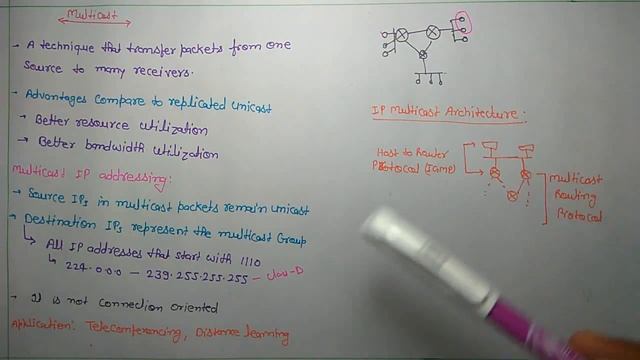 Multicast
→ A technique that transfer packets from one
source to many receivers.
→ Advantages compare to replicated unicast
→ Better resource utilization
→ Better bandwidth utilization
Multicast IP addressing:
→ Source IPs in multicast packets remain unicast
→ Destination IPs represent the multicast Group
↳ All IP addresses that start with 1110
↳ 224.0.0.0 — 239.255.255.255 — class-D
→ It is not connection oriented
Application: Teleconferencing, Distance learning
IP Multicast Architecture:
Host to Router
Protocoal (IGMP)
multicast
Routing
Protocoal